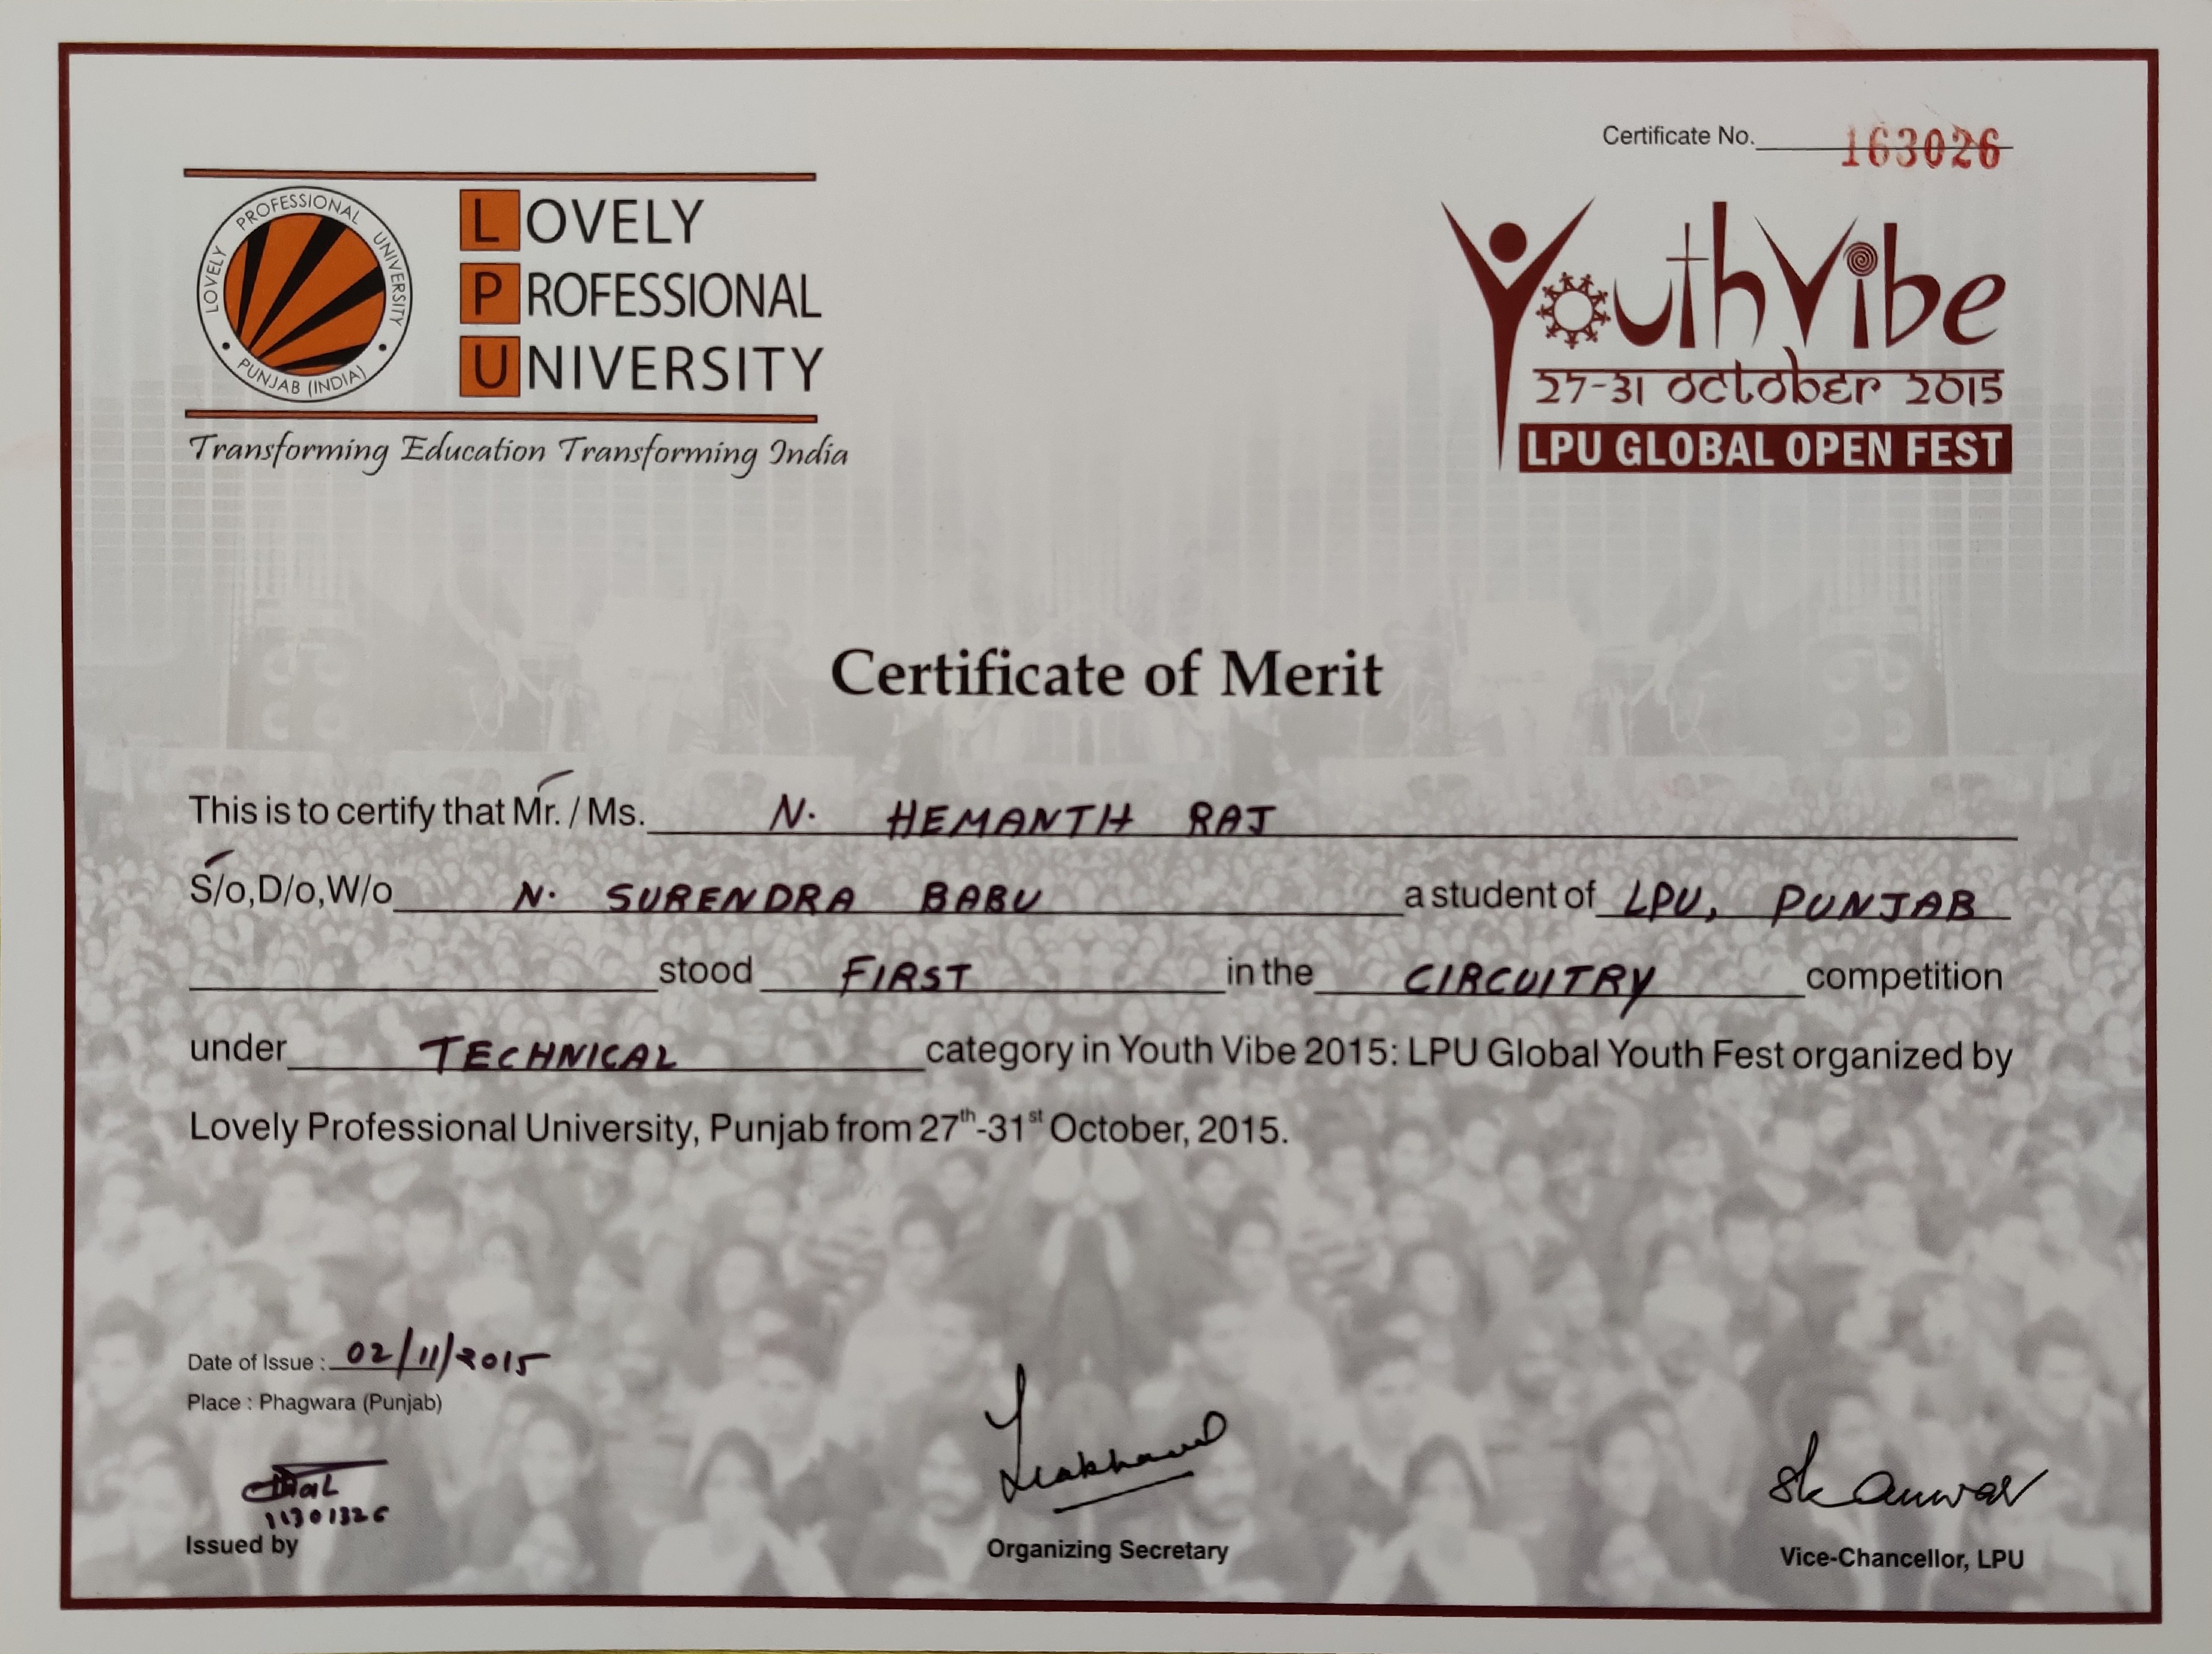 Certificate No. 163026
LOVELY PROFESSIONAL UNIVERSITY
PUNJAB (INDIA)
LOVELY
PROFESSIONAL
UNIVERSITY
Transforming Education Transforming India
YouthVibe
27-31 October 2015
LPU GLOBAL OPEN FEST
Certificate of Merit
This is to certify that Mr. / Ms. N. HEMANTH RAJ
S/o,D/o,W/o N. SURENDRA BABU a student of LPU, PUNJAB
stood FIRST in the CIRCUITRY competition
under TECHNICAL category in Youth Vibe 2015: LPU Global Youth Fest organized by
Lovely Professional University, Punjab from 27th-31st October, 2015.
Date of Issue : 02/11/2015
Place : Phagwara (Punjab)
11301326
Issued by
Organizing Secretary
Vice-Chancellor, LPU